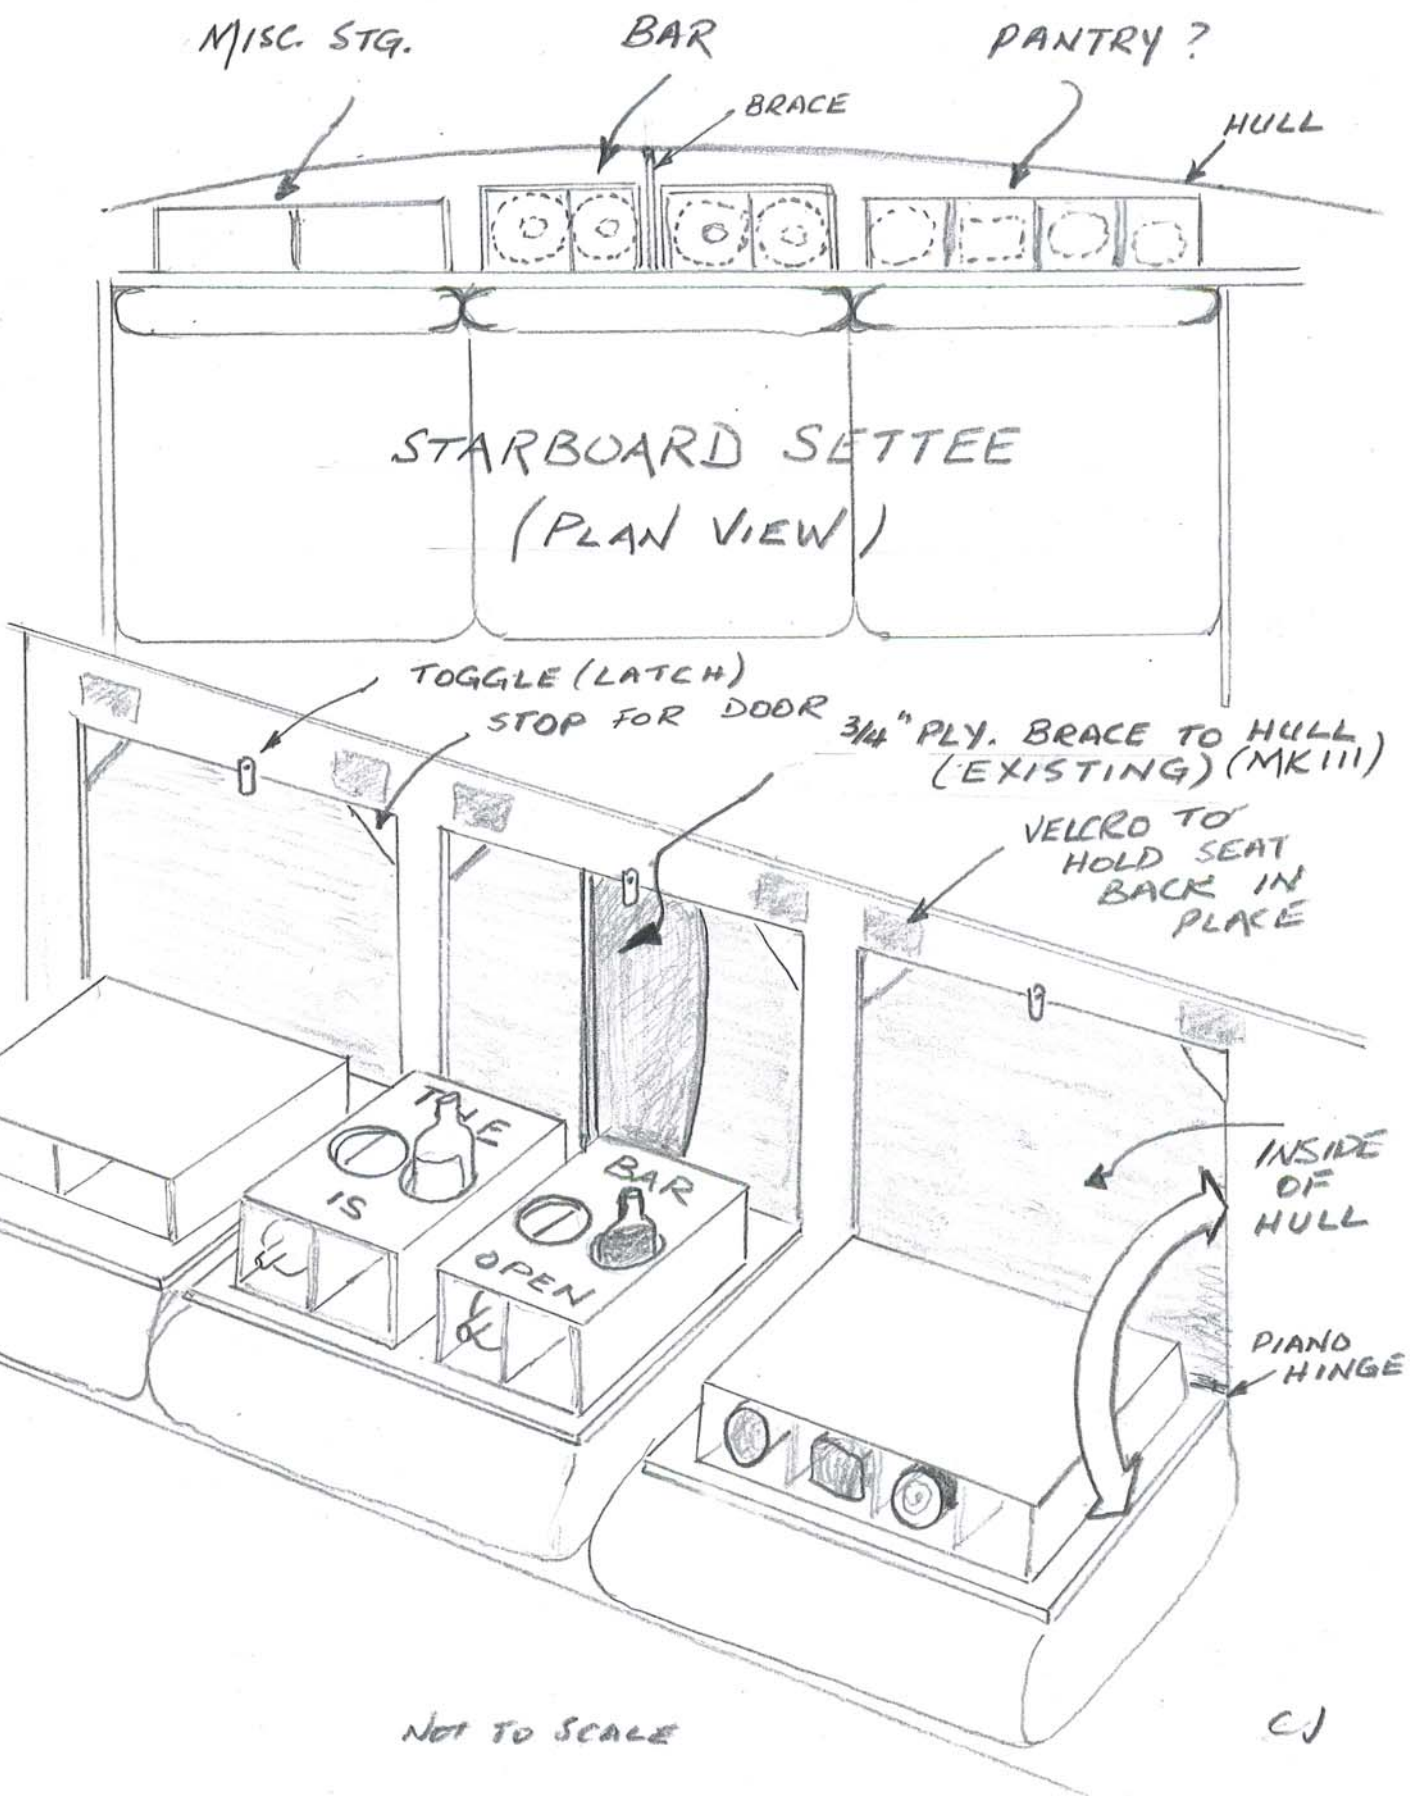 MISC. STG.
BAR
PANTRY ?
BRACE
HULL
STARBOARD SETTEE
(PLAN VIEW)
TOGGLE (LATCH)
STOP FOR DOOR
3/4" PLY. BRACE TO HULL
(EXISTING) (MK III)
VELCRO TO
HOLD SEAT
BACK IN
PLACE
THE
BAR
IS
OPEN
INSIDE
OF
HULL
PIANO
HINGE
NOT TO SCALE
CJ